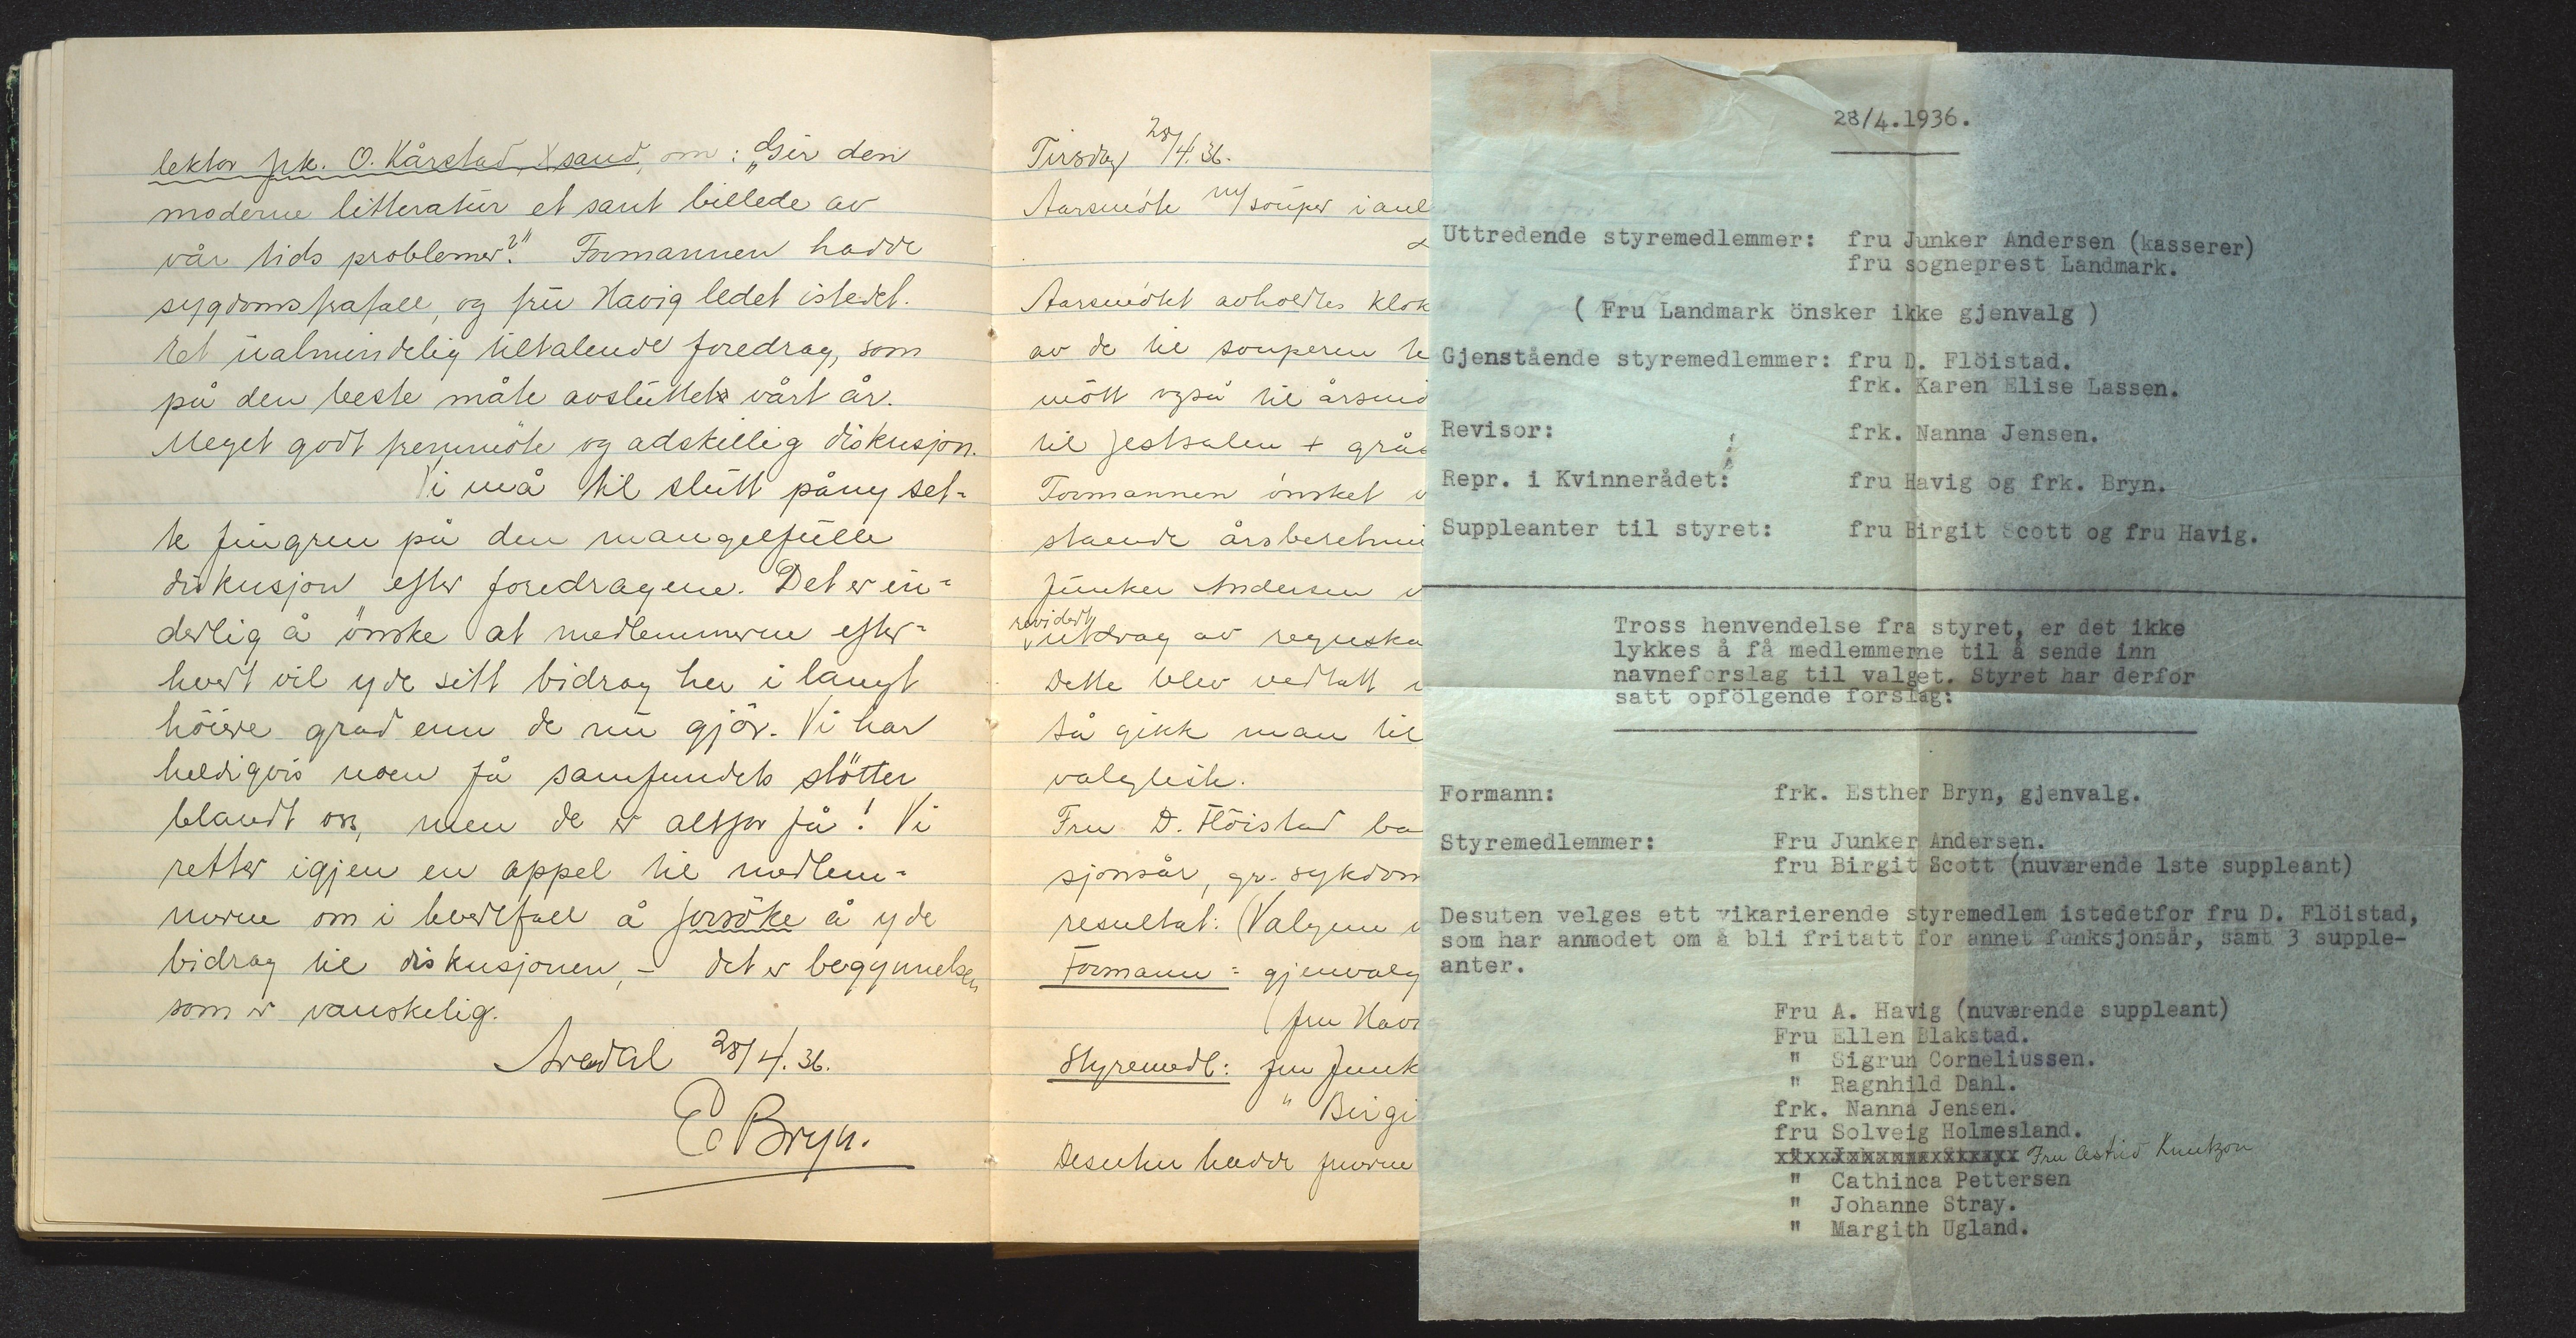 lektor frk. O. Kårstad, Xsand, om: „Gir den
moderne litteratur et sant billede av
vår tids problemer?" Formannen hadde
sygdomsfrafall, og fru Havig ledet istedet.
Et ualmindelig tiltalende foredrag, som
på den beste måte avsluttet vårt år.
Meget godt fremmöte og adskillig diskusjon.
Vi må til slutt påny set-
te fingren på den mangelfulle
diskusjon efter foredragene. Det er in-
derlig å önske at medlemmerne efter-
hvert vil yde sitt bidrag her i langt
höiere grad enn de nu gjör. Vi har
heldigvis noen få samfundets stötter
blandt oss, men de er altfor få! Vi
retter igjen en appel til medlem-
merne om i hvertfall å forsöke å yde
bidrag til diskusjonen, - det er begynnelsen
som er vanskelig.
Arendal 28/4.36.
E Bryn.
Tirsdag 28/4.36.
Aarsmöte m/souper i anl
Aarsmötet avholdtes klok
av de til souperen te
mött også til årsmö
til festsalen + grå
Formannen önsket v
staende årsberetni
Junker Andersen
revidert
utdrag av regnska
Dette blev vedtatt
Så gikk man til
valgliste.
Fru D. Flöistad ba
sjonsår, gr. sykdom
resultat: (Valgene
Formann: gjenvalg
(fru Havi
Styremedl: fru Junk
" Birgi
Desuten hadde fruerne
28/4.1936.
Uttredende styremedlemmer: fru Junker Andersen (kasserer)
fru sogneprest Landmark.
( Fru Landmark önsker ikke gjenvalg )
Gjenstående styremedlemmer: fru D. Flöistad.
frk. Karen Elise Lassen.
Revisor: frk. Nanna Jensen.
Repr. i Kvinnerådet: fru Havig og frk. Bryn.
Suppleanter til styret: fru Birgit Scott og fru Havig.
Tross henvendelse fra styret, er det ikke
lykkes å få medlemmerne til å sende inn
navneforslag til valget. Styret har derfor
satt opfölgende forslag:
Formann: frk. Esther Bryn, gjenvalg.
Styremedlemmer: Fru Junker Andersen.
fru Birgit Scott (nuværende 1ste suppleant)
Desuten velges ett vikarierende styremedlem istedetfor fru D. Flöistad,
som har anmodet om å bli fritatt for annet funksjonsår, samt 3 supple-
anter.
Fru A. Havig (nuværende suppleant)
Fru Ellen Blakstad.
" Sigrun Corneliussen.
" Ragnhild Dahl.
frk. Nanna Jensen.
fru Solveig Holmesland.
Fru Astrid Knutzon
" Cathinca Pettersen
" Johanne Stray.
" Margith Ugland.